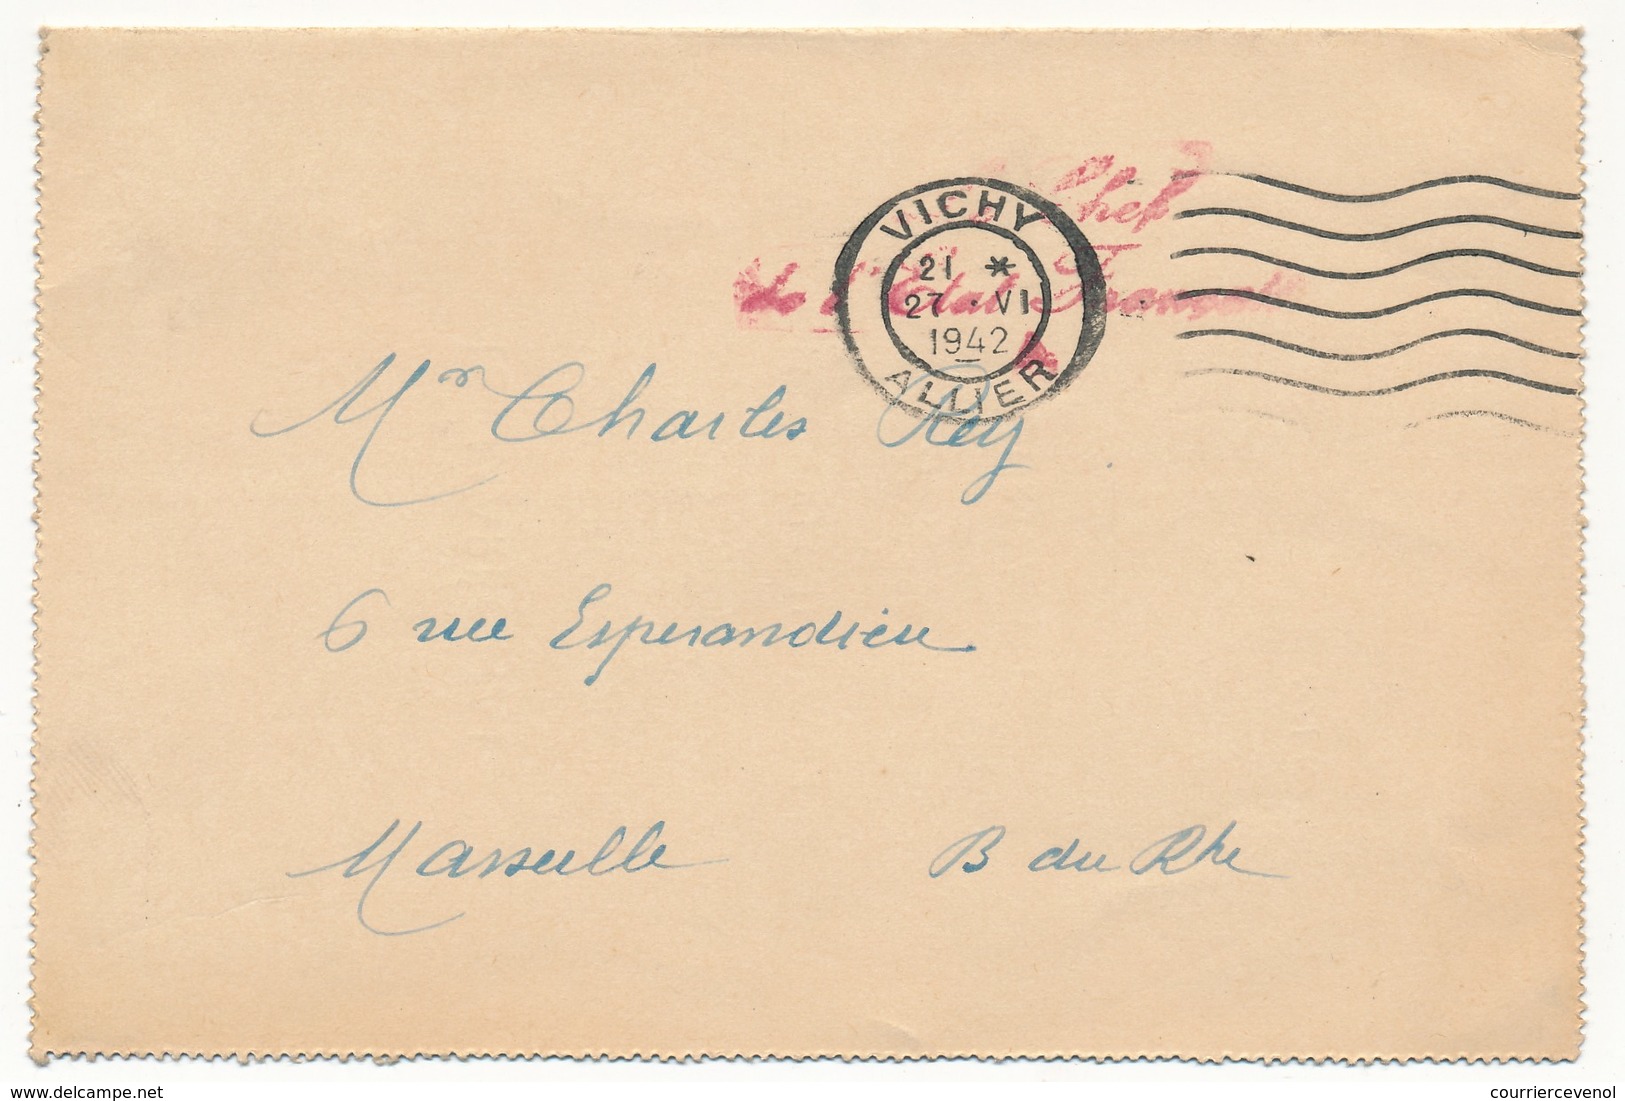 Le Chef
de l'Etat Français
VICHY
21 *
27 · VI
1942
ALLIER
Mr Charles Rey
6 rue Esperandieu
Marseille B du Rhe
delcampe.net
courriercevenol